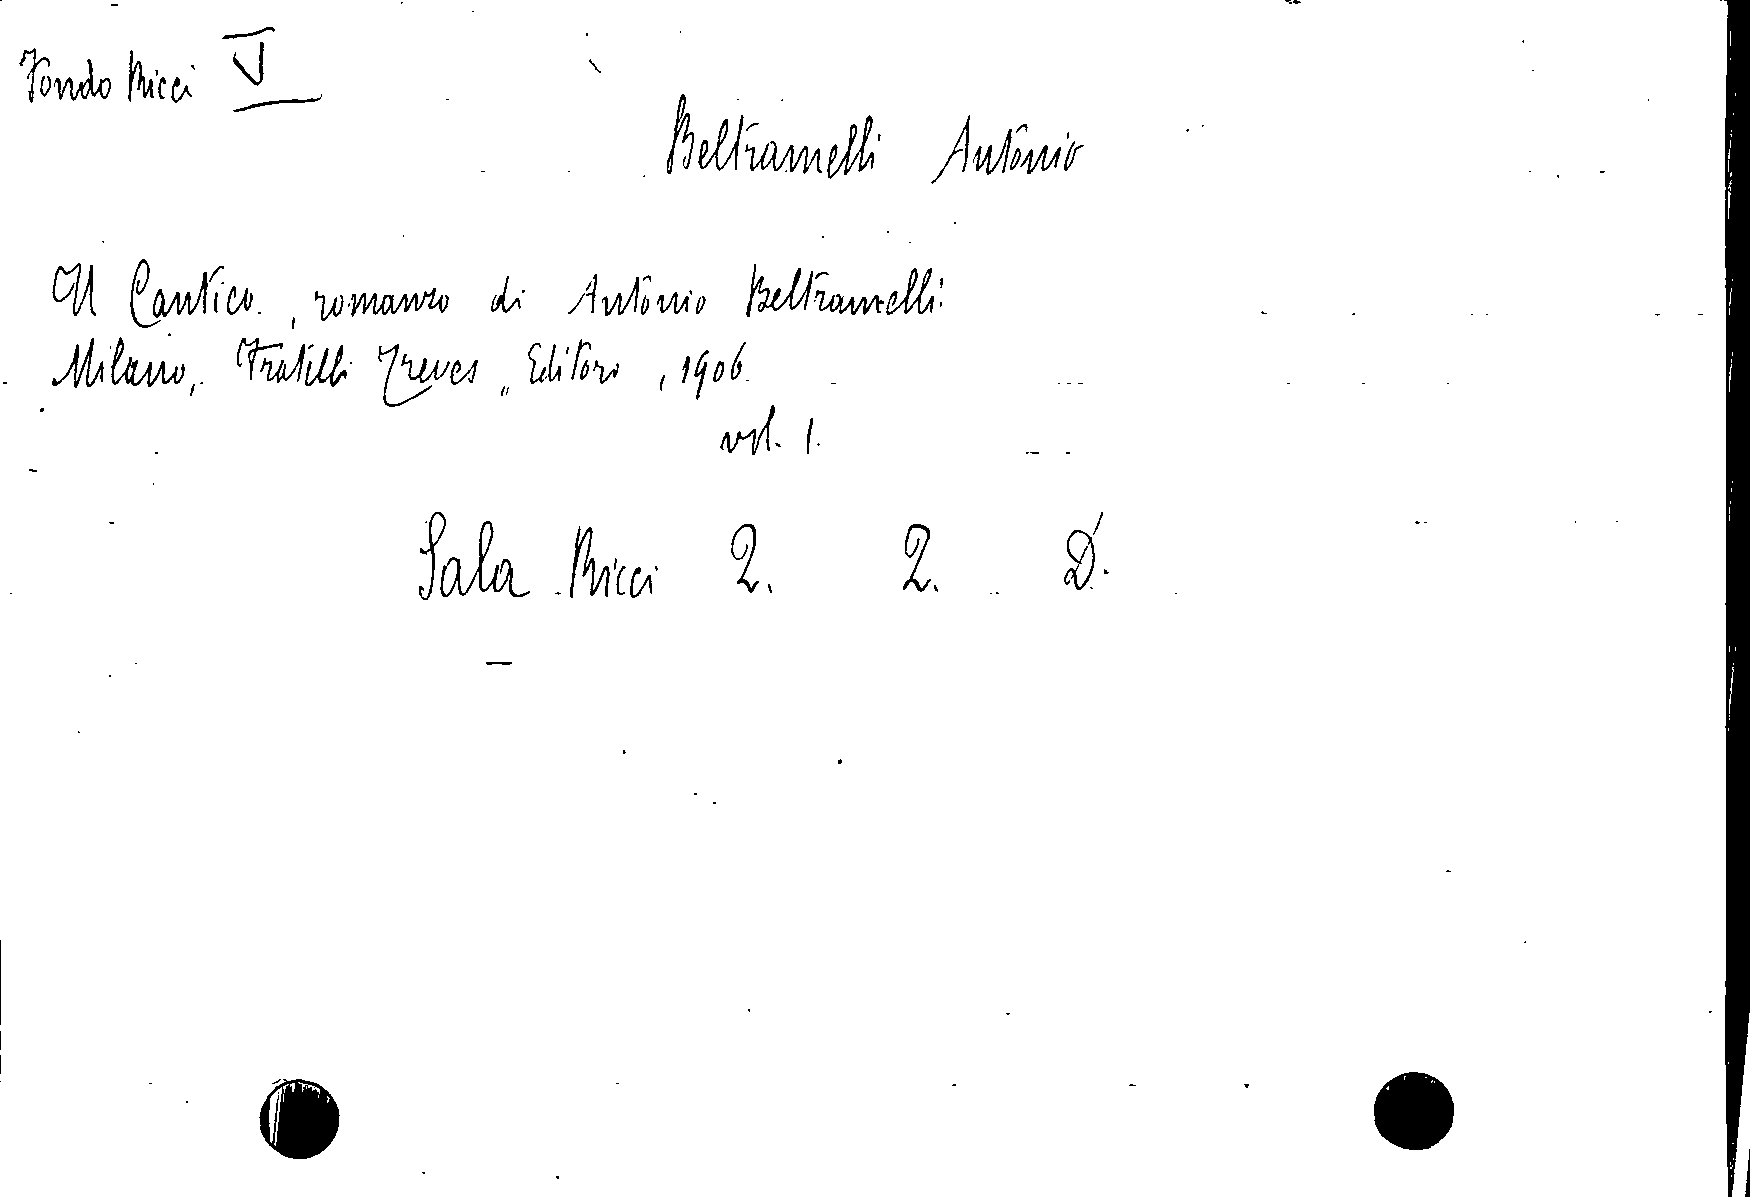 Fondo Ricci V
Beltramelli Antonio
Il Cantico, romanzo di Antonio Beltramelli.
Milano, Fratelli Treves, Editori, 1906
vol. 1.
Sala Ricci 2. 2. D.